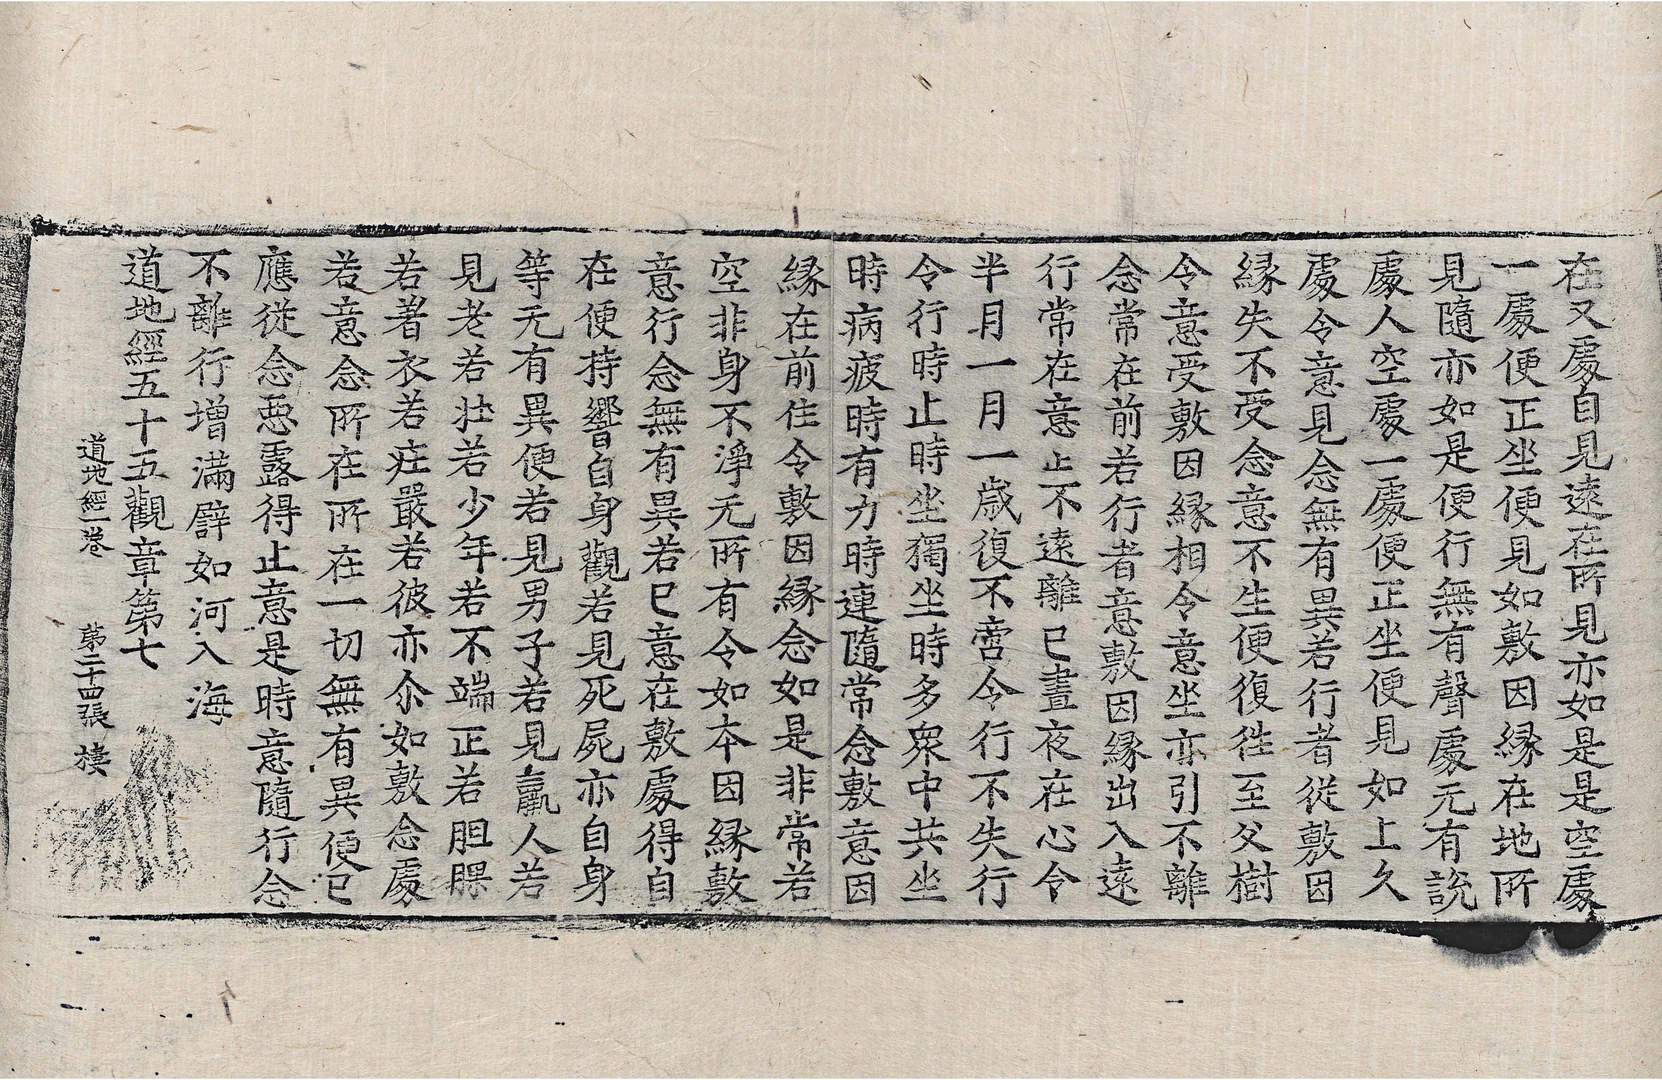 在又處自見遠在所見亦如是是空處
一處便正坐便見如敷因緣在地所
見隨亦如是便行無有聲處无有說
處人空處一處便正坐便見如上久
處令意見念無有異若行者從敷因
緣失不受念意不生便復徃至父樹
令意受敷因緣相令意坐亦引不離
念常在前若行者意敷因緣出入遠
行常在意止不遠離已晝夜在心令
半月一月一歲復不啻令行不失行
令行時止時坐獨坐時多衆中共坐
時病疲時有力時連隨常念敷意因
緣在前住令敷因緣念如是非常若
空非身不淨无所有令如本因緣敷
意行念無有異若已意在敷處得自
在便持響自身觀若見死屍亦自身
等无有異便若見男子若見羸人若
見老若壯若少年若不端正若胆踝
若著衣若疘嚴若彼亦尒如敷念處
若意念所在所在一切無有異便已
應從念惡露得止意是時意隨行念
不離行增滿譬如河入海
道地經五十五觀章第七
道地經一卷 第二十四張 棲